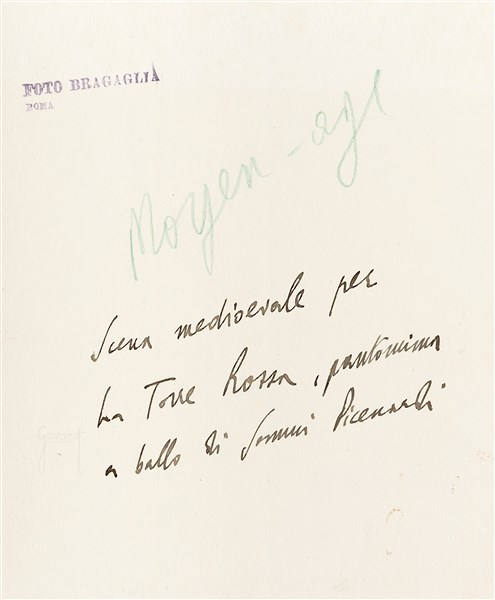 FOTO BRAGAGLIA
ROMA
Moyen-age
Scena medioevale per
La Torre Rossa, pantomima
a ballo di Sommi Picenardi